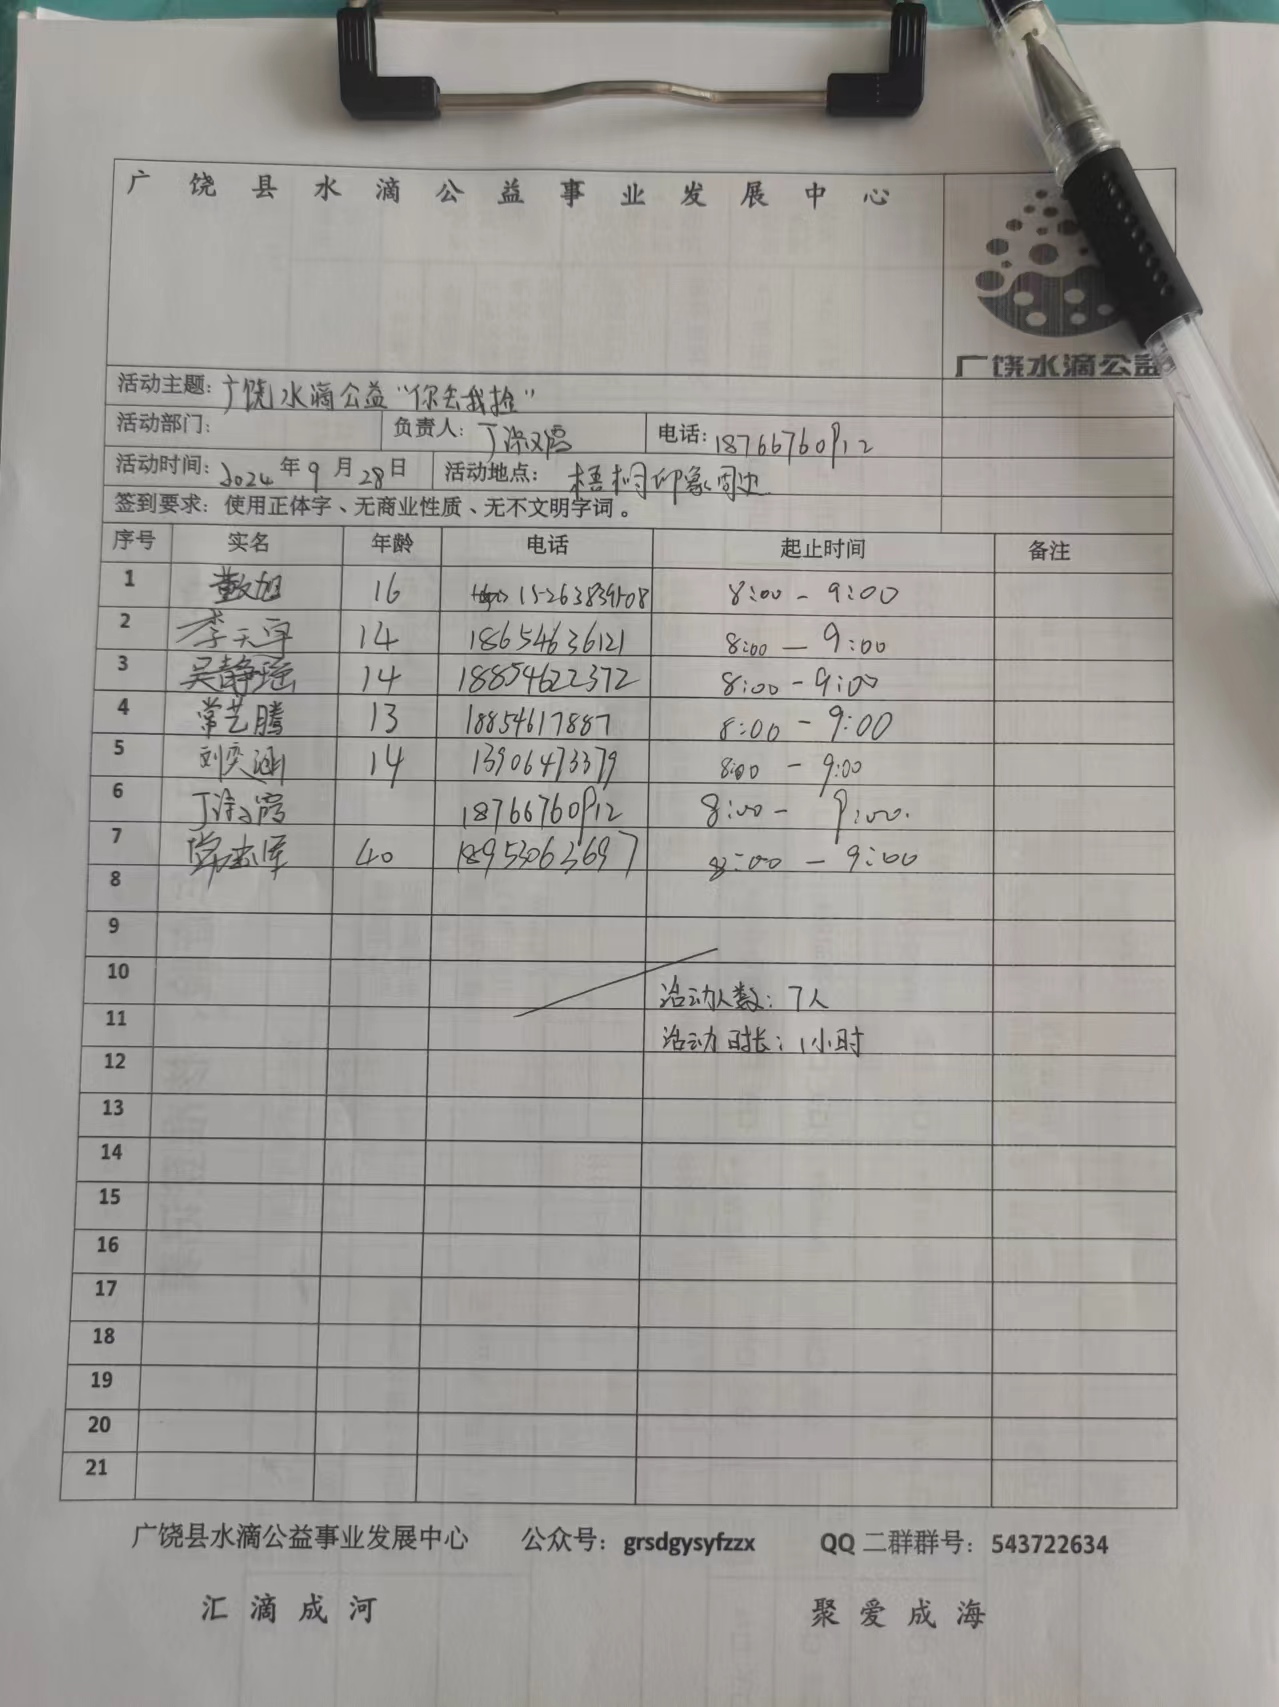 广饶县水滴公益事业发展中心
广饶水滴公益
活动主题：广饶水滴公益“你丢我捡”
活动部门： 负责人：丁 电话：18766760912
活动时间：2024年9月28日 活动地点：梧桐印象周边
签到要求：使用正体字、无商业性质、无不文明字词。
序号 实名 年龄 电话 起止时间 备注
1 16 15263839508 8:00 - 9:00
2 李天宇 14 18654636121 8:00 — 9:00
3 吴静瑶 14 18854622372 8:00 - 9:00
4 常艺腾 13 18854617887 8:00 - 9:00
5 刘奕涵 14 13906473379 8:00 - 9:00
6 丁 18766760912 8:00 - 9:00.
7 40 18953063697 8:00 - 9:00
8
9
10 活动人数：7人
11 活动时长：1小时
12
13
14
15
16
17
18
19
20
21
广饶县水滴公益事业发展中心 公众号：grsdgysyfzzx QQ二群群号：543722634
汇滴成河 聚爱成海